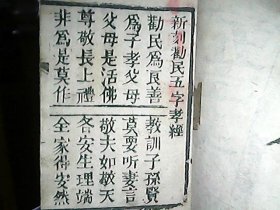 新刻勸民五字孝經
勸民爲良善 教訓子孫賢
爲子孝父母 莫要听妻言
父母是活佛 敬夫如敬天
尊敬長上禮 各安生理端
非爲是莫作 全家得安然